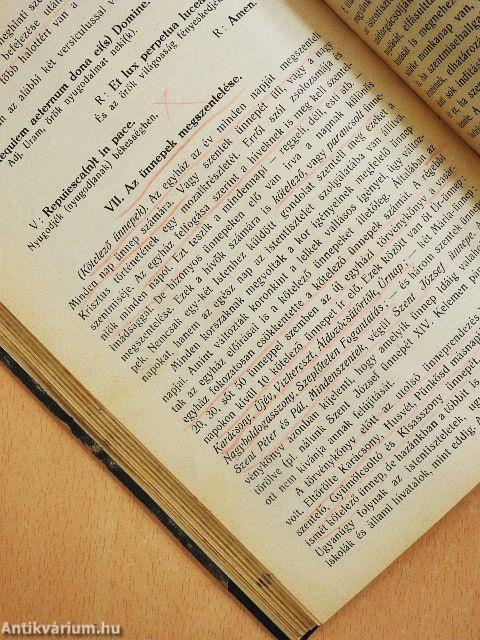 hinteni szent
befejezése után
több halottért van a
en az alábbi két versiculussal v
equiem aeternum dona ei(s) Domine.
Adj, Uram, örök nyugodalmat neki(k).
R: Et lux perpetua luceat
És az örök világosság fényeskedjen
V: Requiescat(nt) in pace.
Nyugodjék (nyugodjanak) békességben.
R: Amen.
VII. Az ünnepek megszentelése.
(Kötelező ünnepek). Az egyház az év minden napját megszenteli.
Minden nap ünnep számára. Vagy szentek ünnepét üli, vagy a nagy
Krisztus történetének egy mozaikrészletét. Erről szól zsolozsmája és
szentmiséje. Az egyház felfogása szerint a híveknek is meg kell szentel-
niök minden napot. Ezt teszik a mindennapi — reggeli, déli, esti stb. —
imádságaik. De bizonyos ünnepeken elő van írva a napnak különös
megszentelése. Ezek a hívők számára is kötelező, vagy parancsolt ünne-
pek. Nemcsak egy-két Istenhez küldött gondolat szenteli meg ezeket a
napokat, hanem az egész nap az istentisztelet szolgálatában van jóllian.
Minden korszaknak megvoltak a kor igényeinek megfelelő ünnep-
napjai. Amint változtak koronkint a lelkek vallásos igényei, úgy változ-
tak az egyház előírásai is a kötelező ünnepeket illetőleg. Általában az
egyház fokozatosan csökkentette a kötelező ünnepek számát. A régebbi
20, 30, sőt 50 ünneppel szemben az új egyházi törvénykönyv a vasár-
napokon kívül 10 kötelező ünnepet ír elő. Ezek között van öt Úr-ünnep:
Karácsony, Újév, Vízkereszt, Áldozócsütörtök, Úrnap; — két Mária-ünnep:
Nagyboldogasszony, Szeplőtelen Fogantatás, — és három szentek ünnepe:
Szent Péter és Pál, Mindenszentek, végül Szent József ünnepe. A tör-
vénykönyv azonban kijelenti, hogy amelyik ünnep idáig valahol el volt
törölve (pl. nálunk Szent József ünnepét XIV. Kelemen pápa
ott nem kívánja annak felújítását.
A törvénykönyv előtt az utolsó ünneprendezés
volt. Eltörölte Karácsony, Húsvét, Pünkösd másnap
szentelő, Gyümölcsoltó és Kisasszony ünnepét
ismét kötelező ünnep, de hazánkban a többit is
Ugyanúgy folynak az istentiszteletek, ugy
iskolák és állami hivatalok mint eddig.
Antikvárium.hu